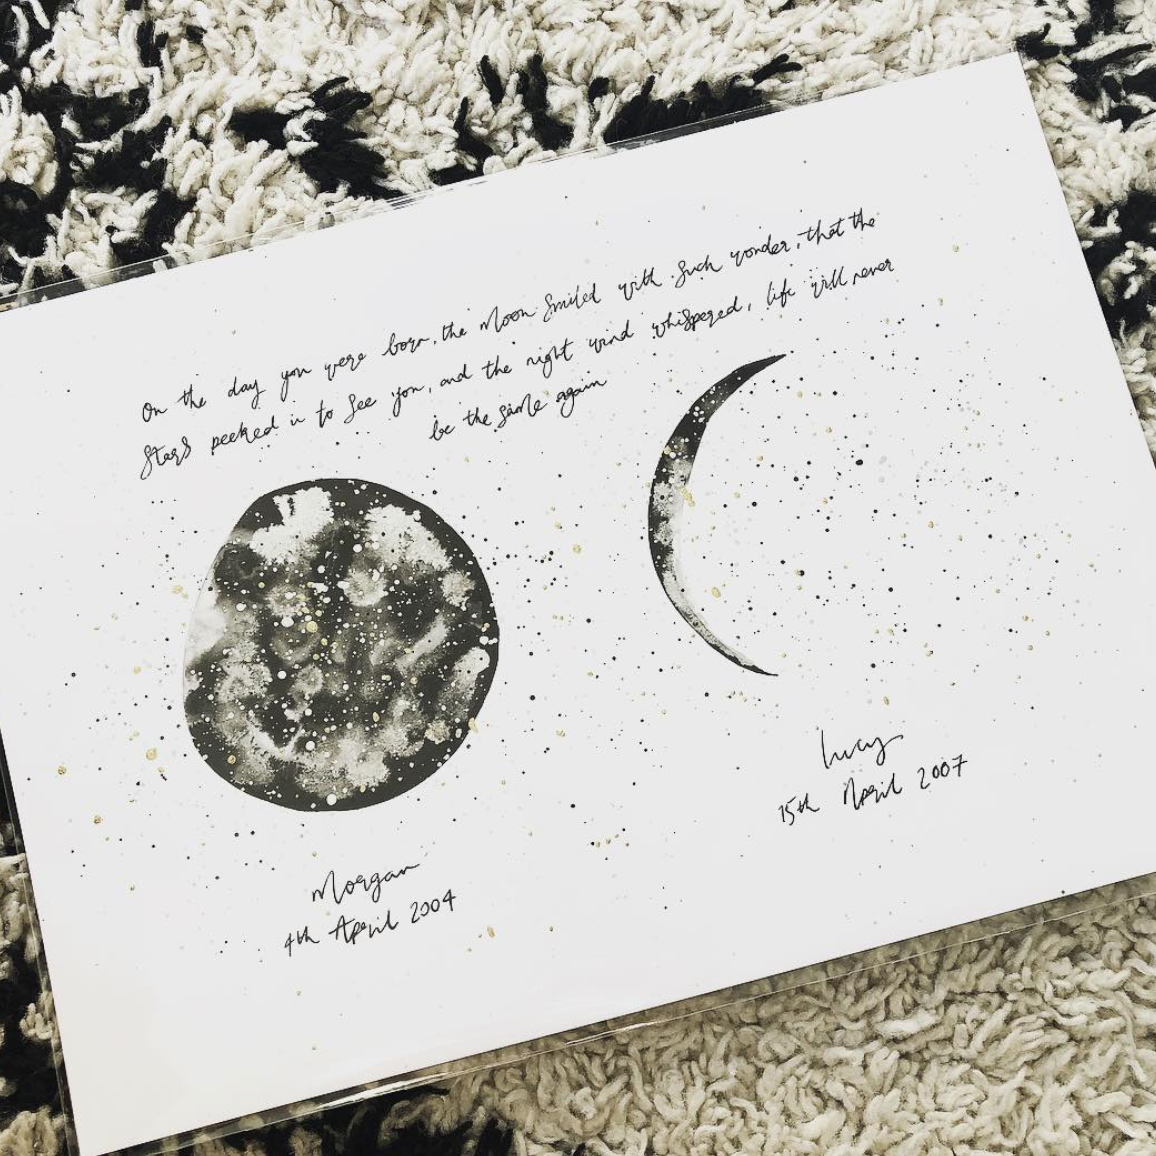 On the day you were born, the Moon Smiled with Such wonder, that the
Stars peeked in to See you, and the night wind whispered, life will never
be the Same again
Morgan
4th April 2004
Lucy
15th April 2007